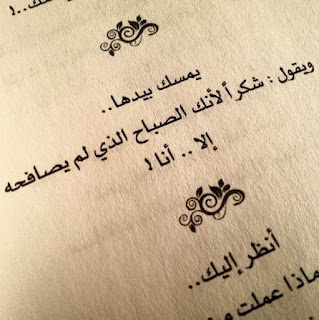 يمسك بيدها..
ويقول : شكراً لأنك الصباح الذي لم يصافحه
إلا .. أنا !
أنظر إليك..
ماذا عملت